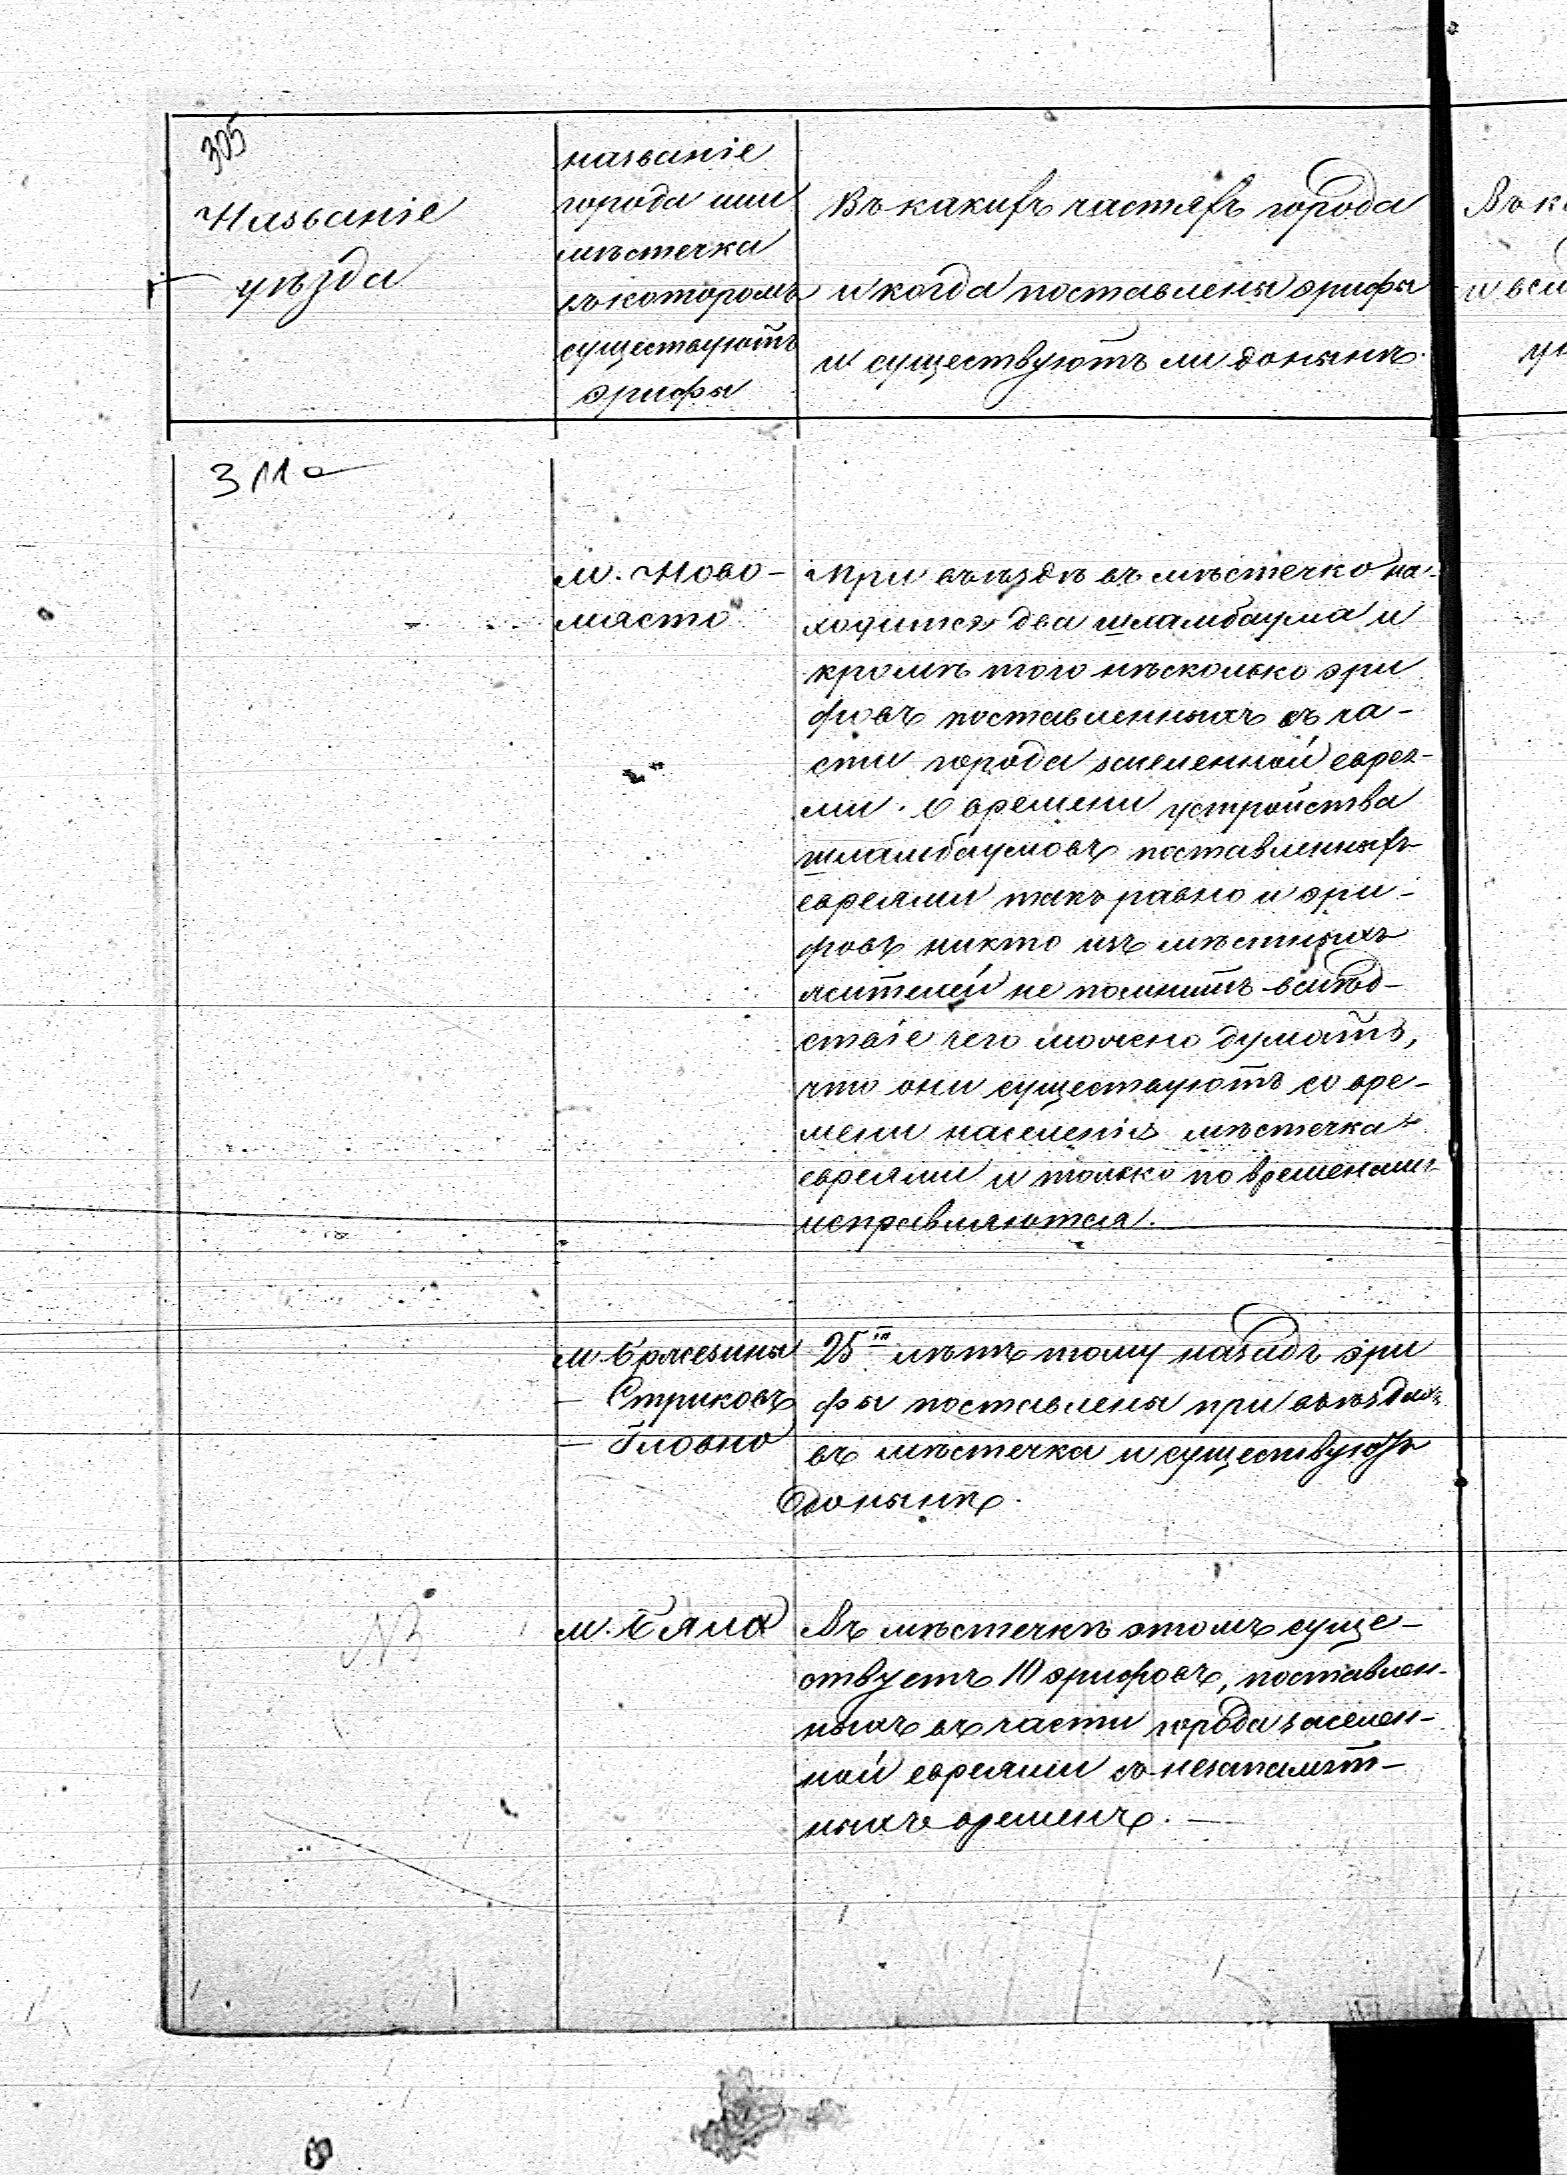 305
Названіе
уѣзда
названіе
города или
мѣстечка
въ которомъ
существуютъ
эрифы
Въ какихъ частяхъ города
и когда поставлены эрифы
и существуютъ ли донынѣ.
Въ к
и всл
311а
м. Ново-
място
При въѣздѣ въ мѣстечко на-
ходится два шламбаума и
кромѣ того нѣсколько эри
фовъ поставленныхъ въ ча-
сти города заселенной еврея-
ми. О времени устройства
шламбаумовъ поставленныхъ
евреями такъ равно и эри-
фовъ никто изъ мѣстныхъ
жителей не помнитъ вслѣд-
ствіе чего можно думать,
что они существуютъ со вре-
мени населенія мѣстечка
евреями и только по временамъ
исправляются.
м. Бржезины
— Стриковъ
— Гловно
25 лѣтъ тому назадъ эри
фы поставлены при въѣздахъ
въ мѣстечка и существуютъ
донынѣ.
м. Бяла
Въ мѣстечкѣ этомъ суще-
ствуетъ 10 эрифовъ, поставлен-
ныхъ въ части города заселен-
ной евреями съ незапамят-
ныхъ временъ. —